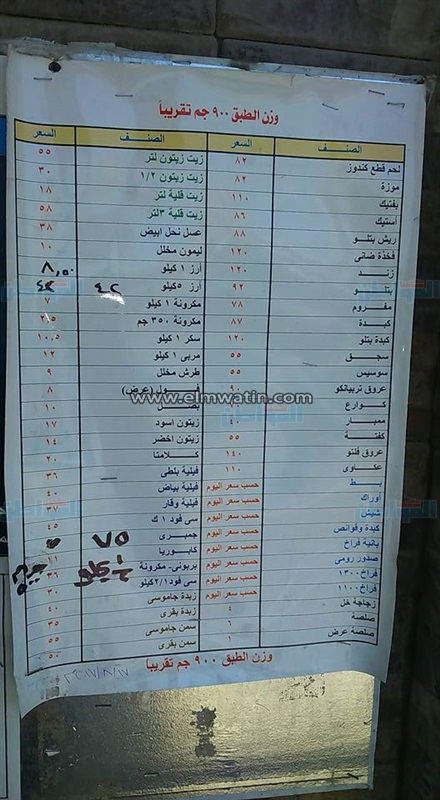 وزن الطبق ٩٠٠ جم تقريباً
الصنف السعر الصنف السعر
لحم قطع كندوز ٨٢ زيت زيتون لتر ٥٥
موزة ٨٢ زيت زيتون ١/٢ ٣٠
بفتيك ١١٠ زيت قلية لتر ١٨
أستيك ٨٦ زيت قلية ٣لتر ٥٨
ريش بتلو ٨٨ عسل نحل ابيض ٣٨
فخذة ضانى ١٢٠ ليمون مخلل ١٠
زند ١٢٠ أرز ١ كيلو ٨,٠٠
بتلو ٩٢ أرز ٥كيلو ٤٢
مفروم ٧٨ مكرونة ١ كيلو ٧
كبدة ٨٧ مكرونة ٣٥٠ جم ٢.٥
كبدة بتلو ١٢٠ سكر ١ كيلو ١٠.٥
سجق ٥٥ مربى ١ كيلو ١٢
سوسيس ٥٥ طرش مخلل ٩
عروق تربيانكو ٩٠ فول (عرض) ٨
كوارع بصل ١٠
ممبار ٤٠ زيتون اسود ١٧
كفتة ٥٥ زيتون اخضر ١٤
عروق فلتو ١٤٠ كلامتا ٢٠
عكاوى ١١٠ فيلية بلطى ٣٦
بط حسب سعر اليوم فيلية بياض ٤٠
أوراك حسب سعر اليوم فيلية وقار ٣٧
شيش حسب سعر اليوم سى فود ١ ك ٤٥
كبدة وقوانص حسب سعر اليوم جمبرى ٧٥
بانية فراخ حسب سعر اليوم كابوريا ١١
صدور رومى حسب سعر اليوم بربونى- مكرونة ٣٦
فراخ ١٣٠٠ حسب سعر اليوم سى فود١/٢كيلو ٣٠
فراخ ١١٠٠ حسب سعر اليوم زبدة جاموسى ٥٠
زجاجة خل ٤ زبدة بقرى ٣٥
صلصة ٦ سمن جاموسى ٥٥
صلصة عرض ١ سمن بقرى ٥٠
وزن الطبق ٩٠٠ جم تقريباً
www.elmwatin.com